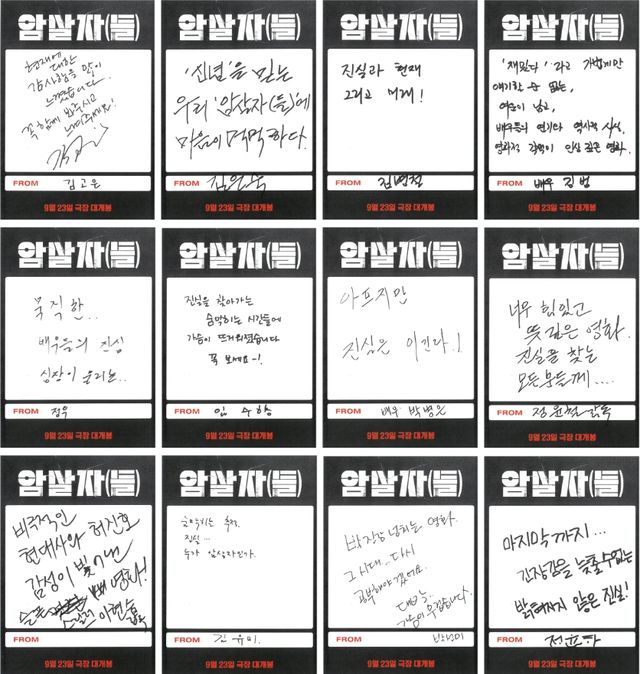 암살자(들)
현재에
대한
감사함을 많이
느꼈습니다..
꼭 함께 봐주시고
FROM 김고은
9월 23일 극장 대개봉
암살자(들)
'신념'을 믿는
우리 '암살자(들)'에
마음이 먹먹하다.
FROM 김은숙
9월 23일 극장 대개봉
암살자(들)
진실과 현재
그리고 미래!
FROM 김병철
9월 23일 극장 대개봉
암살자(들)
'재밌다' 라고 가볍게만
얘기할 수 없는,
여운이 남고,
배우들의 연기와 역사적 사실,
영화적 각색이 인상 깊은 영화.
FROM 배우 김범
9월 23일 극장 대개봉
암살자(들)
묵직한..
배우들의 진심
심장이 울리는..
FROM 정우
9월 23일 극장 대개봉
암살자(들)
진실을 찾아가는
숨막히는 시간들에
가슴이 뜨거워졌습니다
꼭 보세요~!
FROM 임수향
9월 23일 극장 대개봉
암살자(들)
아프지만
진심은 이긴다!
FROM 배우 박병은
9월 23일 극장 대개봉
암살자(들)
너무 힘있고
뜻깊은 영화.
진실을 찾는
모든 분들께....
FROM 정윤철 감독
9월 23일 극장 대개봉
암살자(들)
비극적인
현대사와 허진호
감성이 빛나낸
슬픈 스릴러 영화!
이현승 감독
FROM
9월 23일 극장 대개봉
암살자(들)
숨막히는 추적.
진실...
누가 암살자인가.
FROM 진유미.
9월 23일 극장 대개봉
암살자(들)
박진감 넘치는 영화.
그 시대.. 다시
공부해야겠어요.
대박!
가슴이 뭉클합니다.
FROM
9월 23일 극장 대개봉
암살자(들)
마지막까지...
긴장감을 늦출 수 없는
밝혀지지 않은 진실!
FROM
9월 23일 극장 대개봉